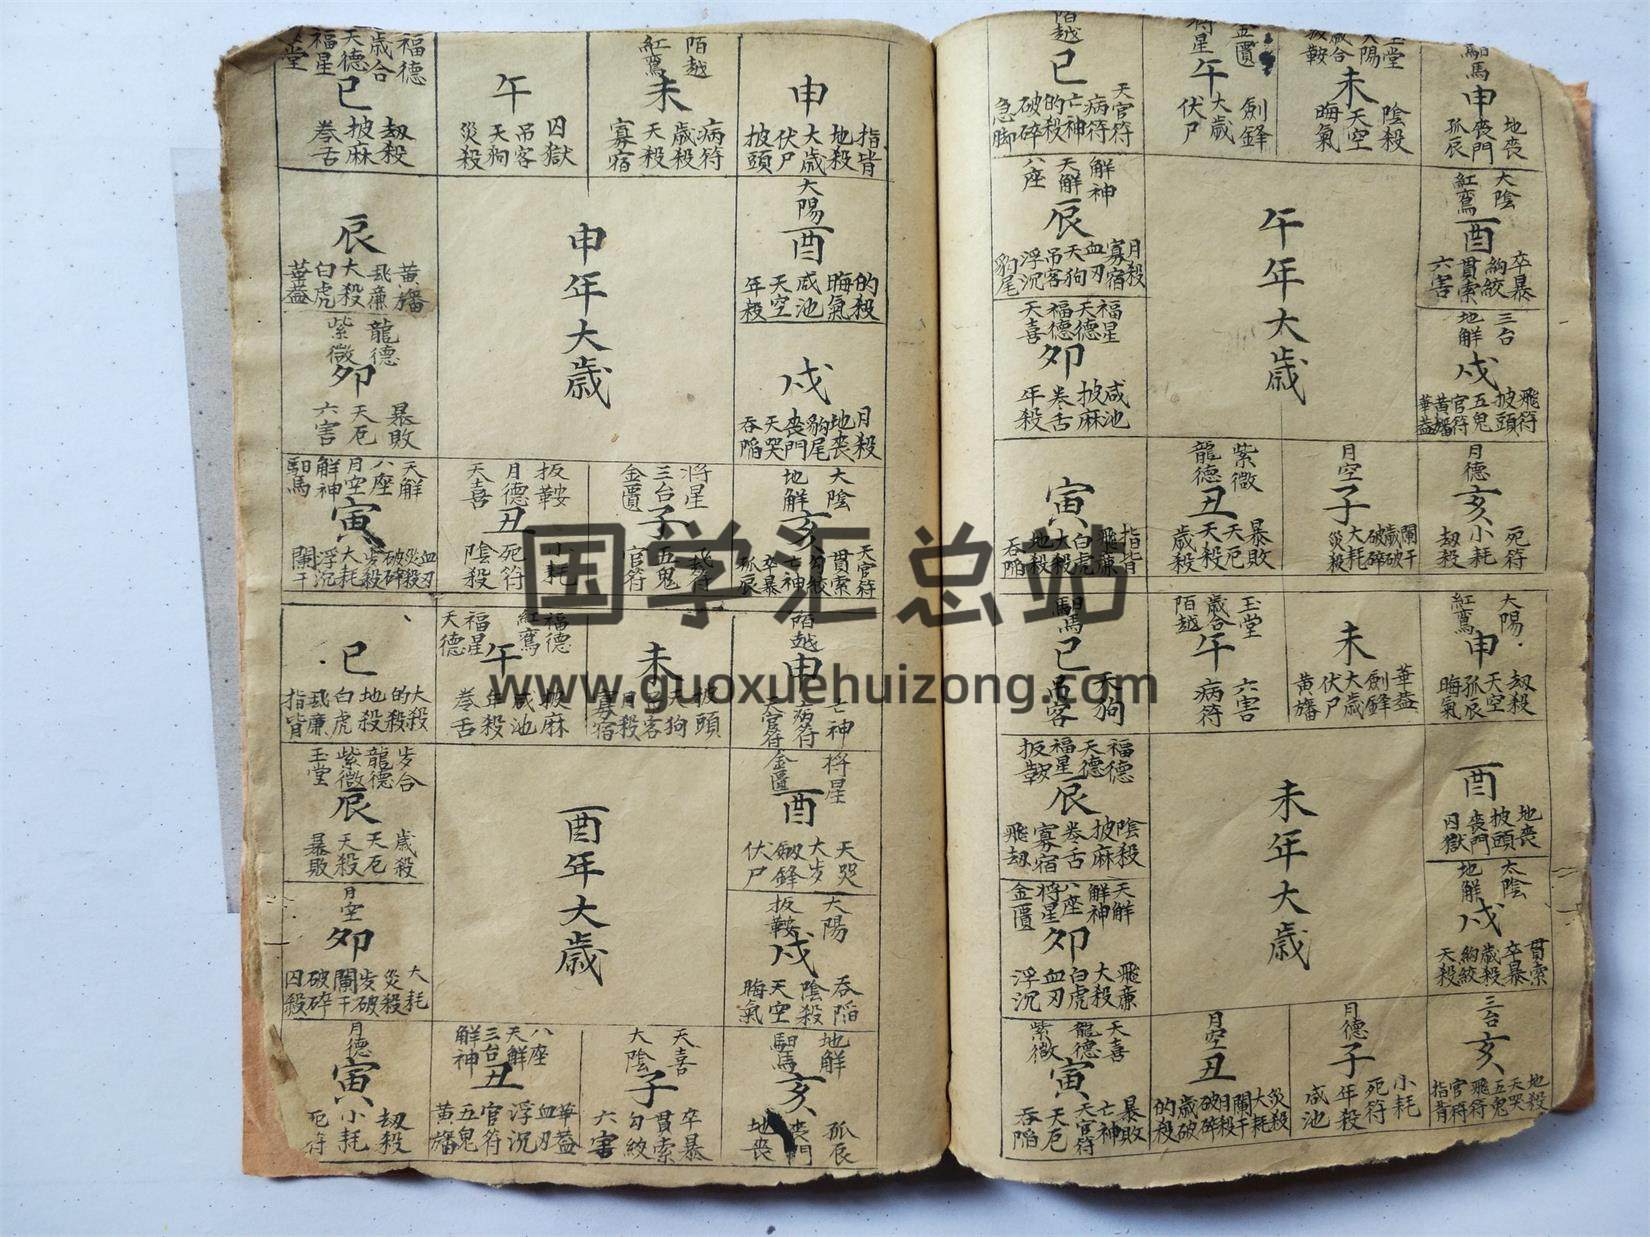 福德
歲合
天德
福星
堂
巳
劫殺
披麻
卷舌
午
囚獄
吊客
天狗
災殺
陌越
紅鸞
未
病符
歲殺
天殺
寡宿
申
指背
地殺
大歲
伏尸
披頭
辰
黃旛
飛廉
大殺
白虎
華蓋
申年大歲
太陽
酉
的殺
晦氣
咸池
天空
年殺
龍德
紫微
卯
暴敗
天厄
六害
戌
月殺
地喪
豹尾
喪門
天哭
吞陷
天解
八座
月空
解神
馹馬
寅
血刃
災殺
破碎
步殺
大耗
浮沉
闌干
扳鞍
月德
天喜
丑
小耗
死符
陰殺
將星
三台
金匱
子
飛符
五鬼
官符
大陰
地解
亥
天官符
貫索
勾絞
亡神
卒暴
孤辰
巳
大殺
的殺
地殺
白虎
飛廉
指背
福德
紅鸞
福星
天德
午
披麻
咸池
年殺
卷舌
未
披頭
天狗
吊客
月殺
寡宿
陌越
申
亡神
病符
天官符
步合
龍德
紫微
玉堂
辰
歲殺
天厄
天殺
暴敗
酉年大歲
將星
金匱
酉
天哭
大步
劍鋒
伏尸
月空
卯
大耗
災殺
步破
闌干
破碎
囚殺
太陽
扳鞍
戌
吞陷
陰殺
天空
晦氣
月德
寅
劫殺
小耗
死符
八座
天解
三台
解神
丑
華蓋
血刃
浮沉
官符
五鬼
黃旛
天喜
大陰
子
卒暴
貫索
勾絞
六害
地解
馹馬
亥
孤辰
喪門
地喪
陌越
巳
天官符
病符
亡神
的殺
破碎
急脚
金匱
將星
午
劍鋒
大歲
伏尸
玉堂
太陽
歲合
扳鞍
未
陰殺
天空
晦氣
馹馬
申
地喪
喪門
孤辰
解神
天解
八座
辰
月殺
寡宿
血刃
天狗
吊客
浮沉
豹尾
午年大歲
大陰
紅鸞
酉
卒暴
絇絞
貫索
六害
福星
天德
福德
天喜
卯
咸池
披麻
卷舌
年殺
三台
地解
戌
飛符
披頭
五鬼
官符
黃旛
華蓋
寅
指背
飛廉
白虎
大殺
地殺
吞陷
紫微
龍德
丑
暴敗
天厄
天殺
歲殺
月空
子
闌干
歲破
破碎
大耗
災殺
月德
亥
死符
小耗
劫殺
馹馬
巳
天狗
吊客
玉堂
歲合
陌越
午
六害
病符
未
華蓋
劍鋒
大歲
伏尸
黃旛
大陽
紅鸞
申
劫殺
天空
孤辰
晦氣
福德
天德
福星
扳鞍
辰
陰殺
披麻
卷舌
寡宿
飛劫
未年大歲
酉
地喪
披頭
喪門
囚獄
天解
解神
八座
將星
金匱
卯
飛廉
大殺
白虎
血刃
浮沉
太陰
地解
戌
貫索
卒暴
歲殺
絇絞
天殺
天喜
龍德
紫微
寅
暴敗
亡神
天官符
天厄
吞陷
月空
丑
災殺
大耗
闌干
月殺
破碎
歲破
的殺
月德
子
小耗
死符
年殺
咸池
三台
亥
地殺
天哭
五鬼
飛符
官符
指背
国学汇总站
www.guoxuehuizong.com